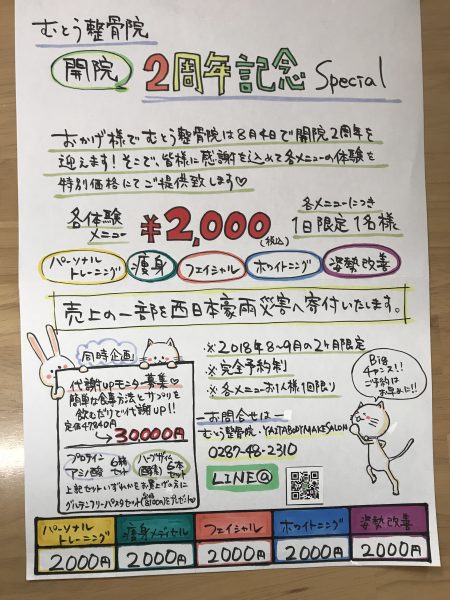 むとう整骨院
開院 2周年記念 Special
おかげ様でむとう整骨院は8月4日で開院2周年を
迎えます！そこで、皆様に感謝を込めて各メニューの体験を
特別価格にてご提供致します♡
各体験
メニュー
¥2,000
(税込)
各メニューにつき
1日限定1名様
パーソナル
トレーニング
痩身
フェイシャル
ホワイトニング
姿勢改善
売上の一部を西日本豪雨災害へ寄付いたします。
同時企画
代謝upモニター募集♡
簡単な食事方法とサプリを
飲むだけで代謝up!!
定価47840円
→30000円
プロテイン
アミノ酸
6種
セット
ハーブザイム
(酵素)
6本
セット
上記セットいずれかをお買上げの方に
グルテンフリーパスタセットをプレゼント♡
※2018年8〜9月の2ヶ月限定
※完全予約制
※各メニューお1人様1回限り
Big
チャンス!!
ご予約は
お早めに!!
—お問合せは—
むとう整骨院・YAITABODYMAKESALON
0287-48-2310
LINE@
パーソナル
トレーニング
2000円
痩身メディセル
2000円
フェイシャル
2000円
ホワイトニング
2000円
姿勢改善
2000円